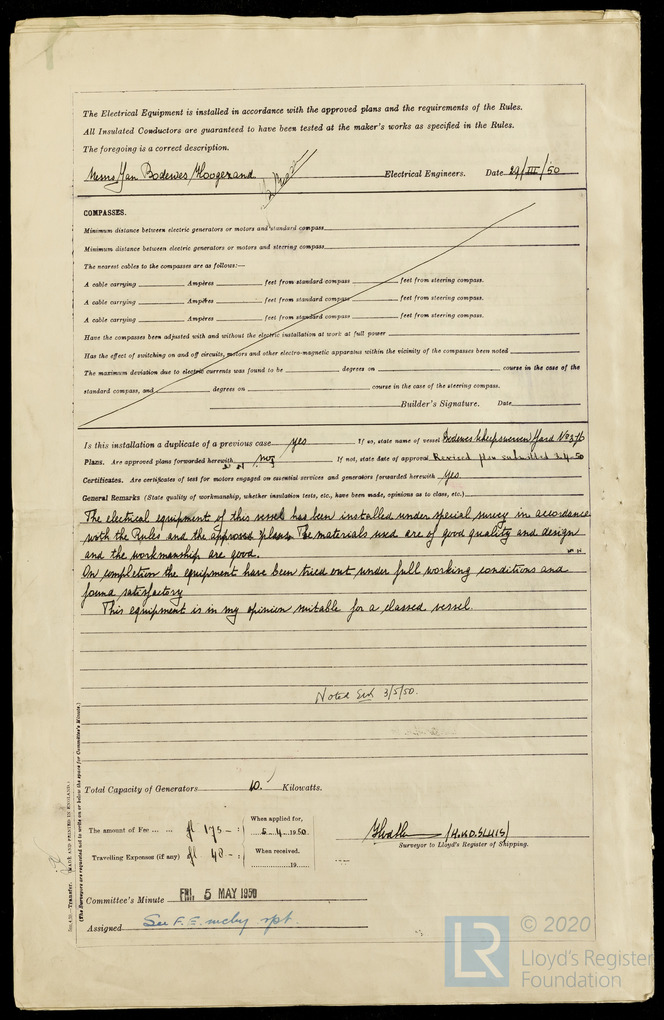 The Electrical Equipment is installed in accordance with the approved plans and the requirements of the Rules.
All Insulated Conductors are guaranteed to have been tested at the maker's works as specified in the Rules.
The foregoing is a correct description.
Messrs Jan Bodewes, Hoogezand Electrical Engineers. Date 29/III/'50
COMPASSES.
Minimum distance between electric generators or motors and standard compass
Minimum distance between electric generators or motors and steering compass
The nearest cables to the compasses are as follows:—
A cable carrying Ampères feet from standard compass feet from steering compass.
A cable carrying Ampères feet from standard compass feet from steering compass.
A cable carrying Ampères feet from standard compass feet from steering compass.
Have the compasses been adjusted with and without the electric installation at work at full power
Has the effect of switching on and off circuits, motors and other electro-magnetic apparatus within the vicinity of the compasses been noted
The maximum deviation due to electric currents was found to be degrees on course in the case of the
standard compass, and degrees on course in the case of the steering compass.
Builder's Signature. Date
Is this installation a duplicate of a previous case yes If so, state name of vessel Bodewes Scheepswerven Yard No 376
Plans. Are approved plans forwarded herewith If not, state date of approval Revised plan submitted 3.4.50
Certificates. Are certificates of test for motors engaged on essential services and generators forwarded herewith Yes
General Remarks (State quality of workmanship, whether insulation tests, etc., have been made, opinions as to class, etc.)
The electrical equipment of this vessel has been installed under special survey in accordance
with the Rules and the approved plans. The materials used are of good quality and design
and the workmanship are good.
On completion the equipment have been tried out under full working conditions and
found satisfactory
This equipment is in my opinion suitable for a classed vessel.
Noted 3/5/50.
Total Capacity of Generators 10. Kilowatts.
The amount of Fee ... ... fl 175 - : When applied for, 5.4.1950
Travelling Expenses (if any) fl 48 - : When received, 19
(H.K.D.SLUIS)
Surveyor to Lloyd's Register of Shipping.
Committee's Minute FRI. 5 MAY 1950
Assigned See F.E. mchy rpt.
Transfer. (MADE AND PRINTED IN ENGLAND.)
(The Surveyors are requested not to write on or below the space for Committee's Minute.)
LR
© 2020
Lloyd's Register
Foundation